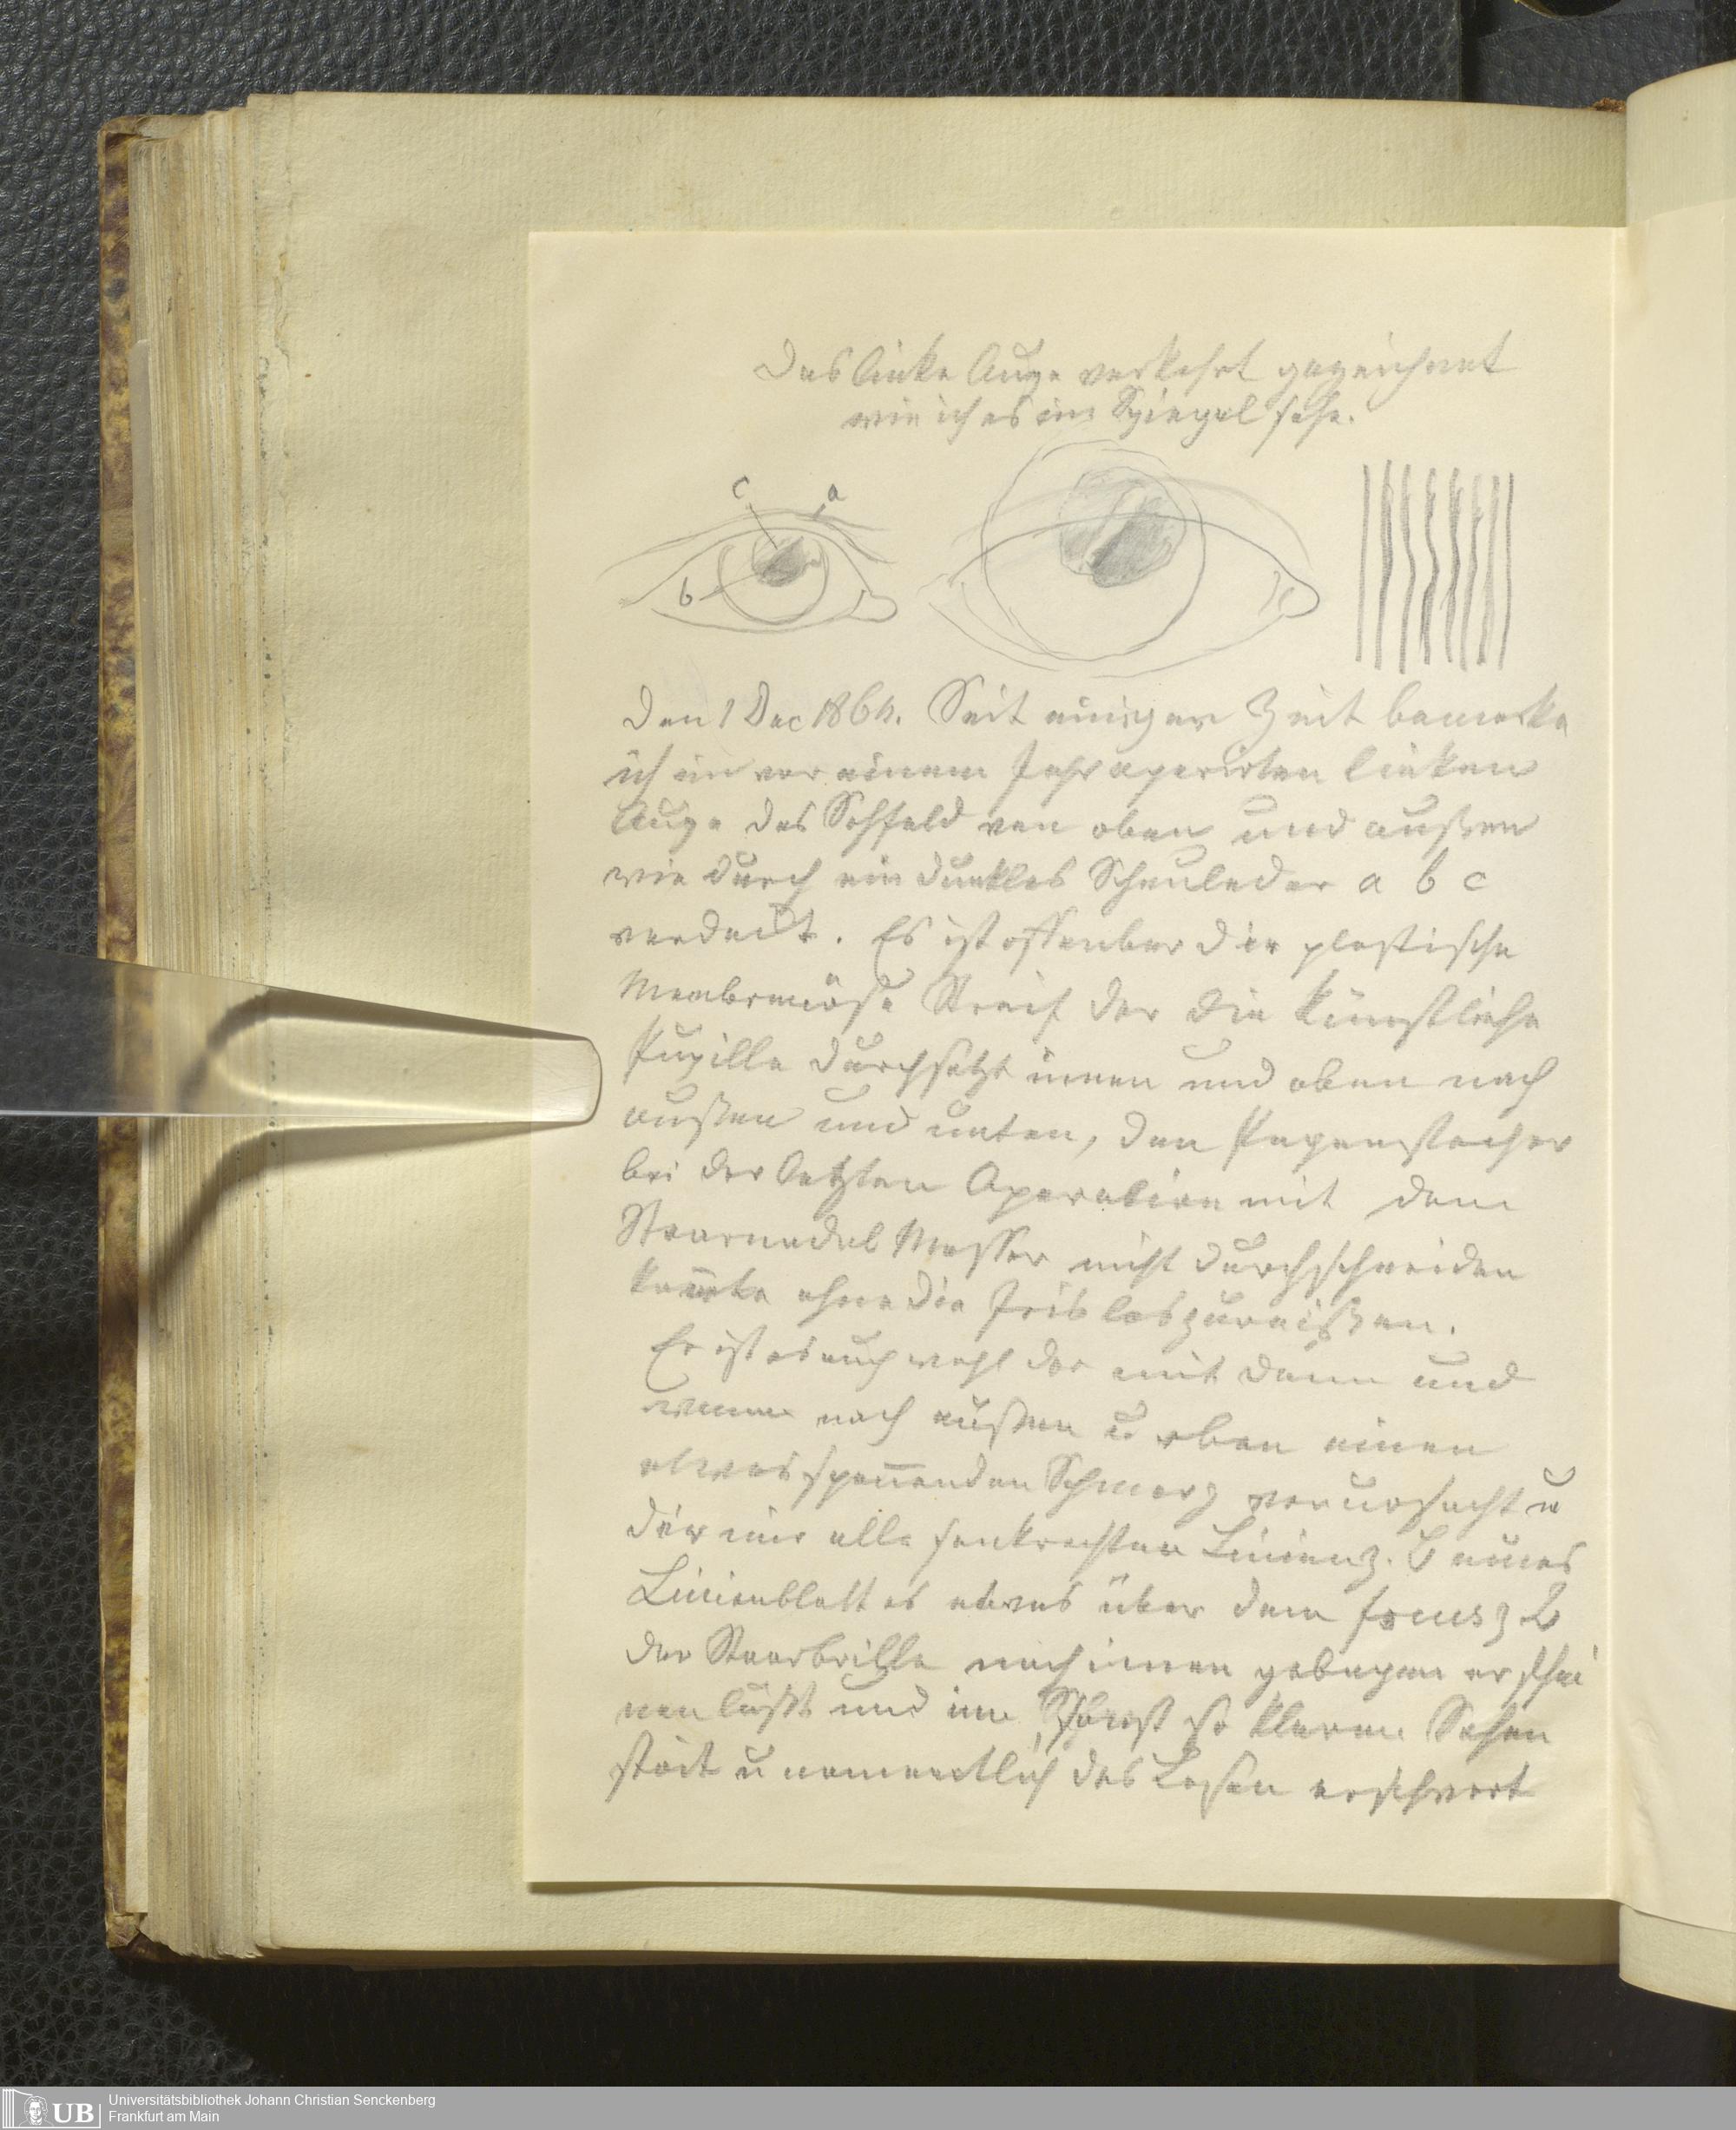 Das linke Auge verkehrt gezeichnet
wie ich es im Spiegel sehe.
c a
b
Den 1 Dec 1864. Seit einiger Zeit bemerke
ich im vor einem Jahr operirten linken
Auge das Sehfeld von oben und außen
wie durch ein dunkles Scheuleder a b c
verdeckt. Es ist offenbar der plastische
Membranöse Streif der die künstliche
Pupille durchsetzt innen und oben nach
außen und unten, den Pagenstecher
bei der letzten Operation mit dem
Staarnadel Messer nicht durchschneiden
konnte ohne die Iris loszureißen.
Er ist es auch wohl der mit dann und
wann nach außen u oben einen
etwas spannenden Schmerz verursacht u
der mir alle senkrechten Linien z. B eines
Linienblattes etwas über dem focus
der Staarbrille nach innen gebogen erschei
nen läßt und im so klaren Sehen
stört u namentlich das Lesen erschwert
UB Universitätsbibliothek Johann Christian Senckenberg
Frankfurt am Main